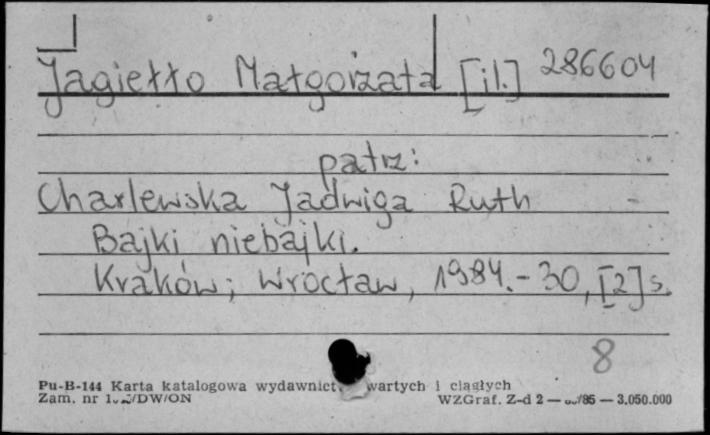 Jagiełło Małgorzata [il.] 286604
patrz:
Charlewska Jadwiga Ruth
Bajki niebajki.
Kraków; Wrocław, 1984. - 30, [2] s.
8
Pu-B-144 Karta katalogowa wydawnict wartych i ciągłych
Zam. nr /DW/ON WZGraf. Z-d 2 — /85 — 3.050.000